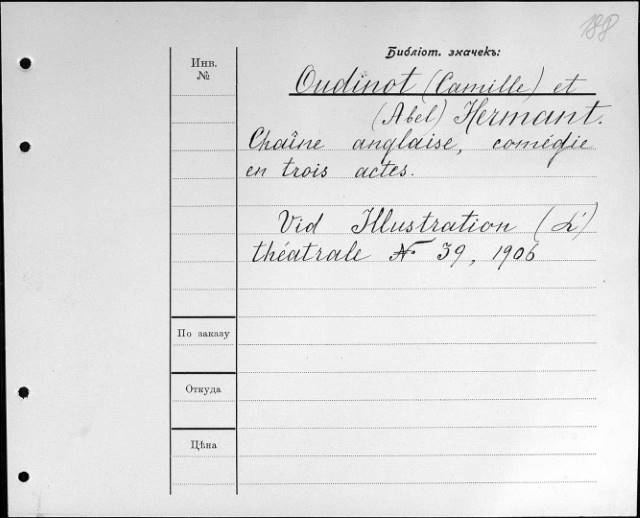 188
Библіот. значекъ:
Инв.
№
Oudinot (Camille) et
(Abel) Hermant.
Chaîne anglaise, comédie
en trois actes.
Vid Illustration (L')
théatrale № 39, 1906
По заказу
Откуда
Цѣна